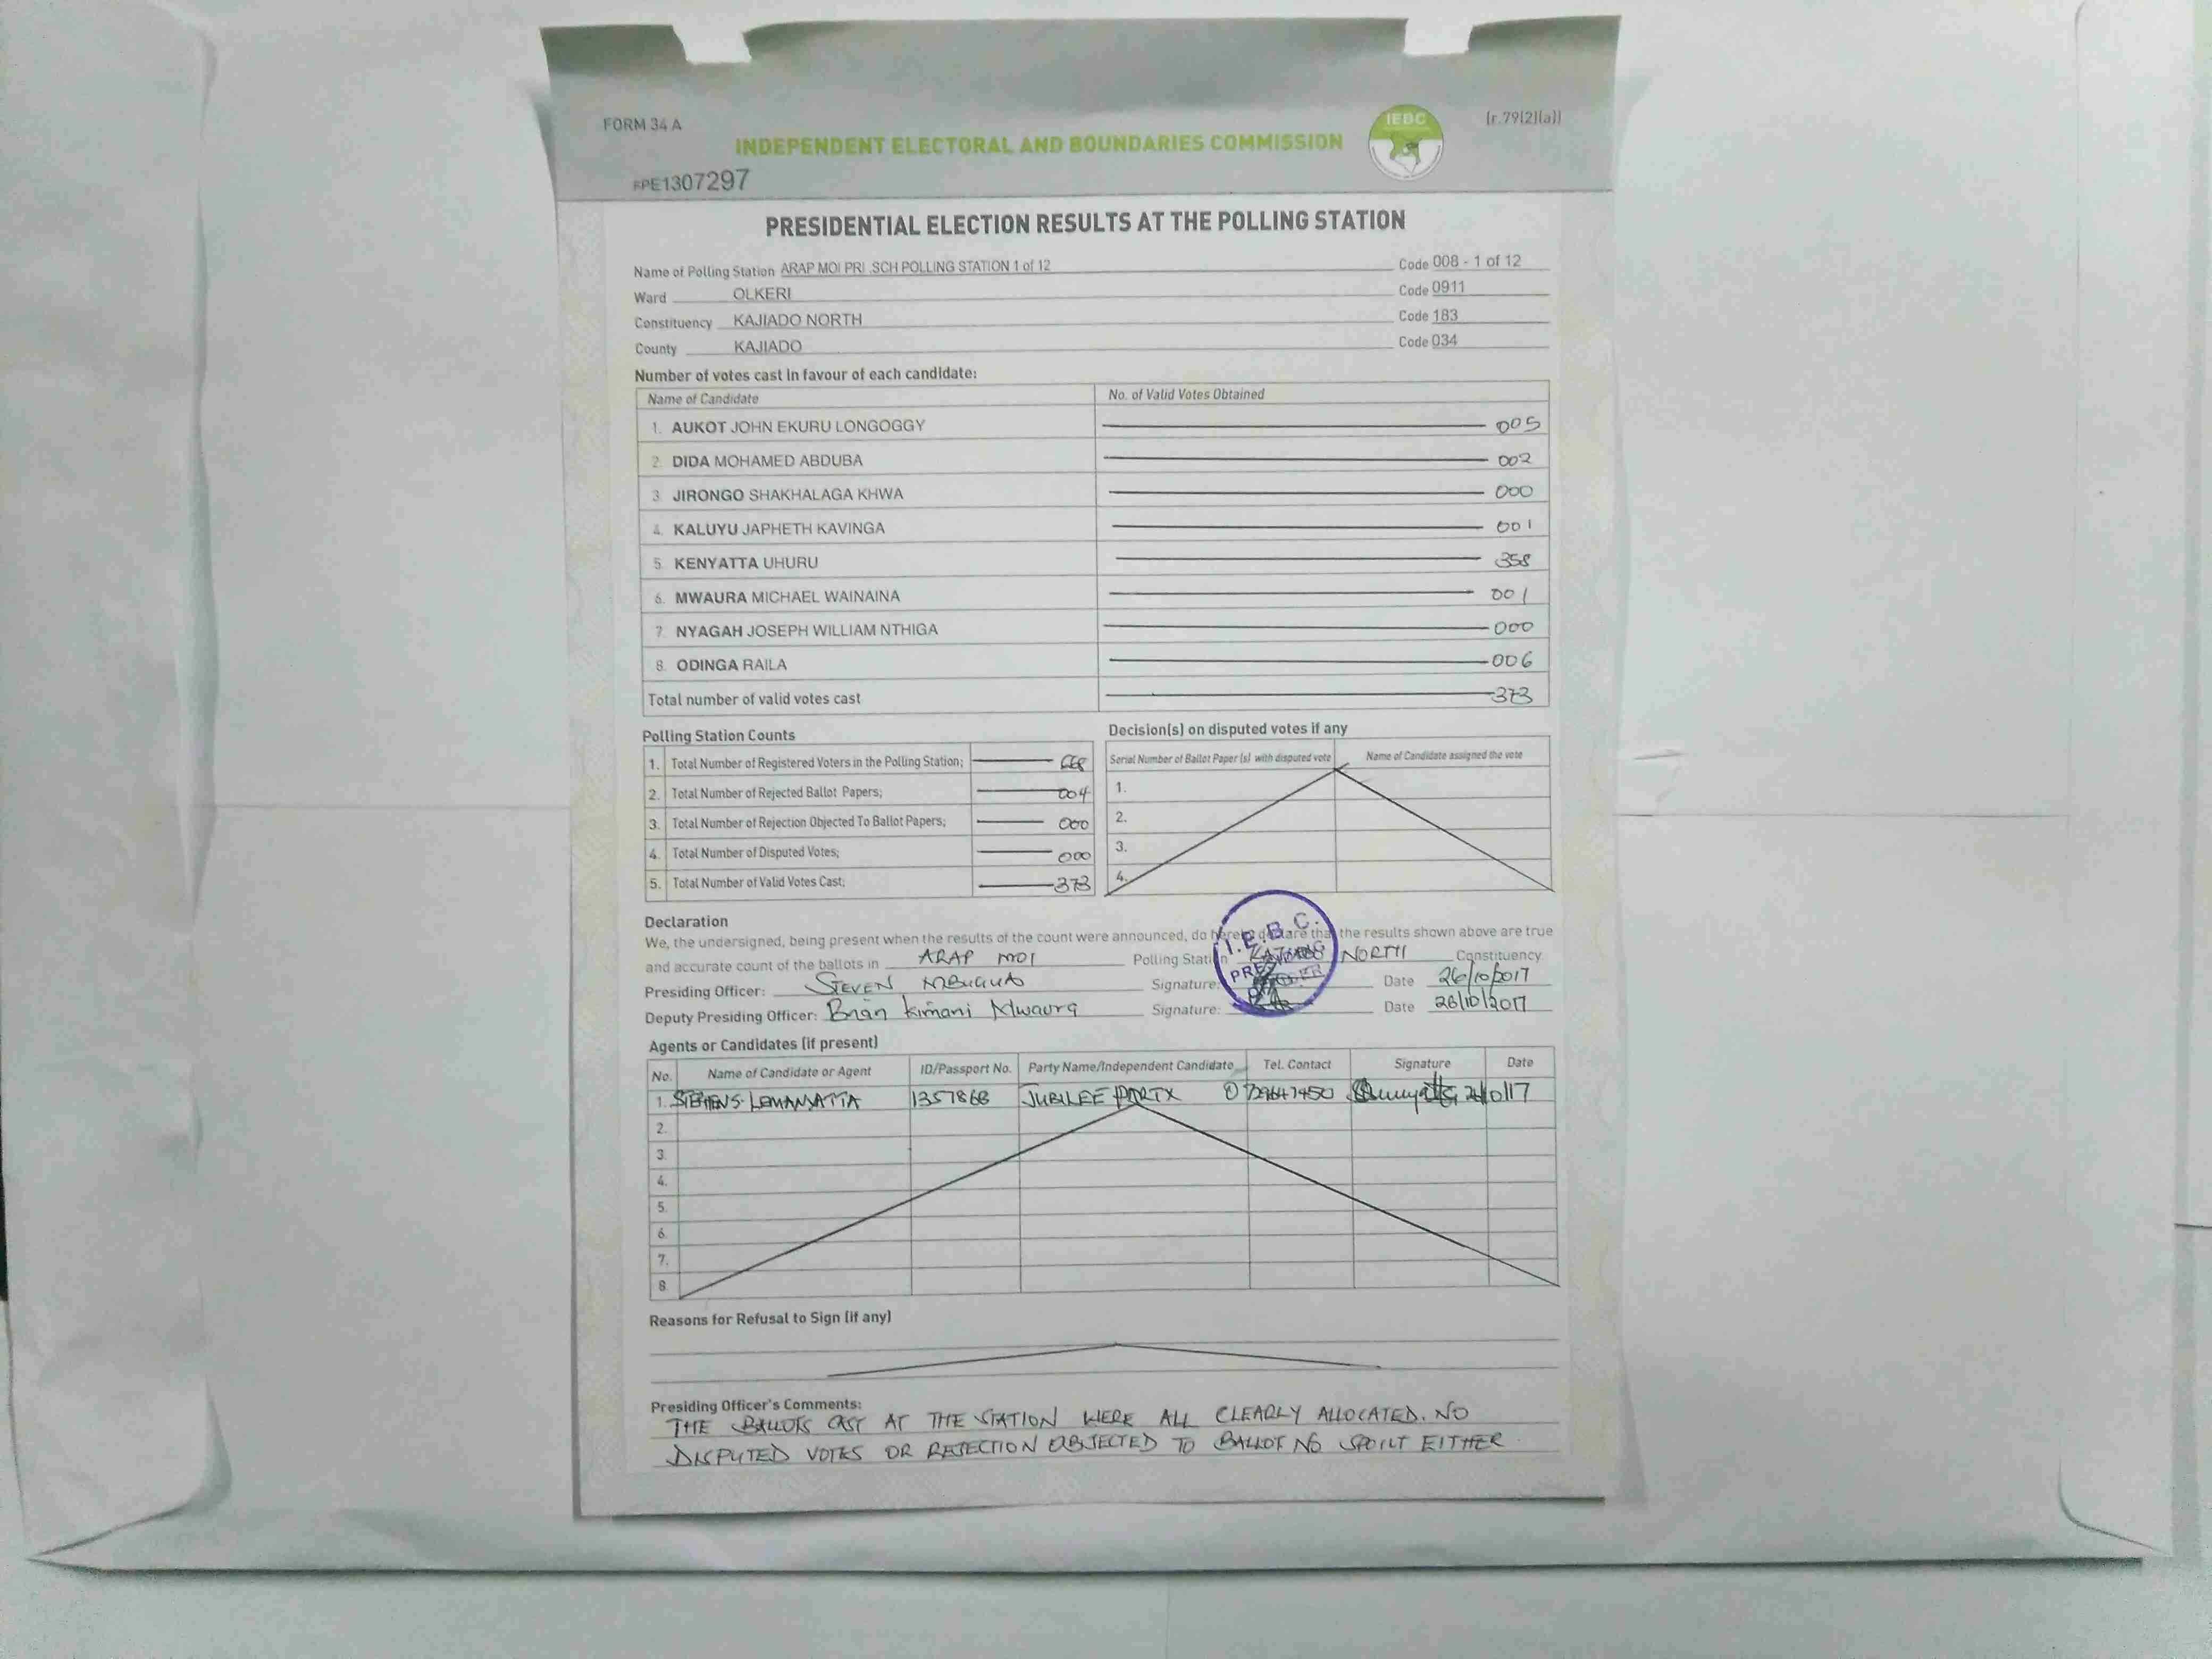 FORM 34 A
IEBC
[r.79(2)(a)]
INDEPENDENT ELECTORAL AND BOUNDARIES COMMISSION
FPE1307297
PRESIDENTIAL ELECTION RESULTS AT THE POLLING STATION
Name of Polling Station ARAP MOI PRI .SCH POLLING STATION 1 of 12 Code 008 - 1 of 12
Ward OLKERI Code 0911
Constituency KAJIADO NORTH Code 183
County KAJIADO Code 034
Number of votes cast in favour of each candidate:
Name of Candidate No. of Valid Votes Obtained
1. AUKOT JOHN EKURU LONGOGGY 005
2. DIDA MOHAMED ABDUBA 002
3. JIRONGO SHAKHALAGA KHWA 000
4. KALUYU JAPHETH KAVINGA 001
5. KENYATTA UHURU 358
6. MWAURA MICHAEL WAINAINA 001
7. NYAGAH JOSEPH WILLIAM NTHIGA 000
8. ODINGA RAILA 006
Total number of valid votes cast 373
Polling Station Counts
1. Total Number of Registered Voters in the Polling Station;
2. Total Number of Rejected Ballot Papers; 004
3. Total Number of Rejection Objected To Ballot Papers; 000
4. Total Number of Disputed Votes; 000
5. Total Number of Valid Votes Cast; 373
Decision(s) on disputed votes if any
Serial Number of Ballot Paper (s) with disputed vote Name of Candidate assigned the vote
1.
2.
3.
4.
Declaration
We, the undersigned, being present when the results of the count were announced, do hereby declare that the results shown above are true
and accurate count of the ballots in ARAP MOI Polling Station KAJIADO NORTH Constituency
I.E.B.C.
Presiding Officer: STEVEN MBUGUA Signature: Date 26/10/2017
Deputy Presiding Officer: Brian Kimani Mwaura Signature: Date 26/10/2017
Agents or Candidates (if present)
No. Name of Candidate or Agent ID/Passport No. Party Name/Independent Candidate Tel. Contact Signature Date
1. JUBILEE PARTY
2.
3.
4.
5.
6.
7.
8.
Reasons for Refusal to Sign (if any)
Presiding Officer's Comments:
THE BALLOTS CAST AT THE STATION WERE ALL CLEARLY ALLOCATED. NO
DISPUTED VOTES OR REJECTION OBJECTED TO BALLOT NO SPOILT EITHER